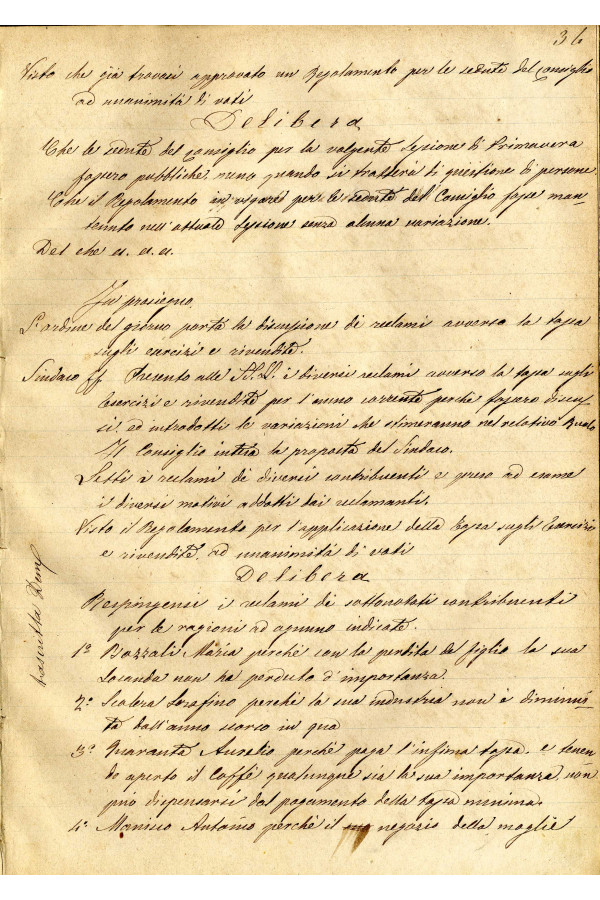 36
Visto che già trovasi approvato un Regolamento per le sedute del Consiglio
ad unanimità di voti
Delibera
Che le sedute del Consiglio per la volgente Sessione di Primavera
fossero pubbliche, meno quando si tratterà di quistione di persone
Che il Regolamento in vigore per le sedute del Consiglio fosse man-
tenuto nell'attuale Sessione senza alcuna variazione.
Del che
In prosieguo
L'ordine del giorno porta la discussione di reclami avverso la tassa
sugli esercizi e rivendite.
Sindaco ff Presento alle i diversi reclami avverso la tassa sugli
Esercizi e rivendite per l'anno corrente perchè fossero discus-
si, ed introdotti le variazioni che stimeranno nel relativo Ruolo
Il Consiglio intesa la proposta del Sindaco.
Letti i reclami di diversi contribuenti e preso ad esame
i diversi motivi addotti dai reclamanti.
Visto il Regolamento per l'applicazione della tassa sugli Esercizi
e rivendite, ad unanimità di voti
Delibera
Respingersi i reclami di sottonotati contribuenti
per le ragioni ad ognuno indicate.
1° Bozzali Maria perchè con la perdita del figlio la sua
Locanda non ha perduto d'importanza.
2° Scalera Serafino perchè la sua industria non è diminui-
ta dall'anno scorso in qua
3° Quaranta Aurelio perchè paga l'infima tassa, e tenen-
do aperto il Caffè qualunque sia la sua importanza, non
può dispensarsi dal pagamento della tassa minima.
4° Antonio perchè il negozio della moglie